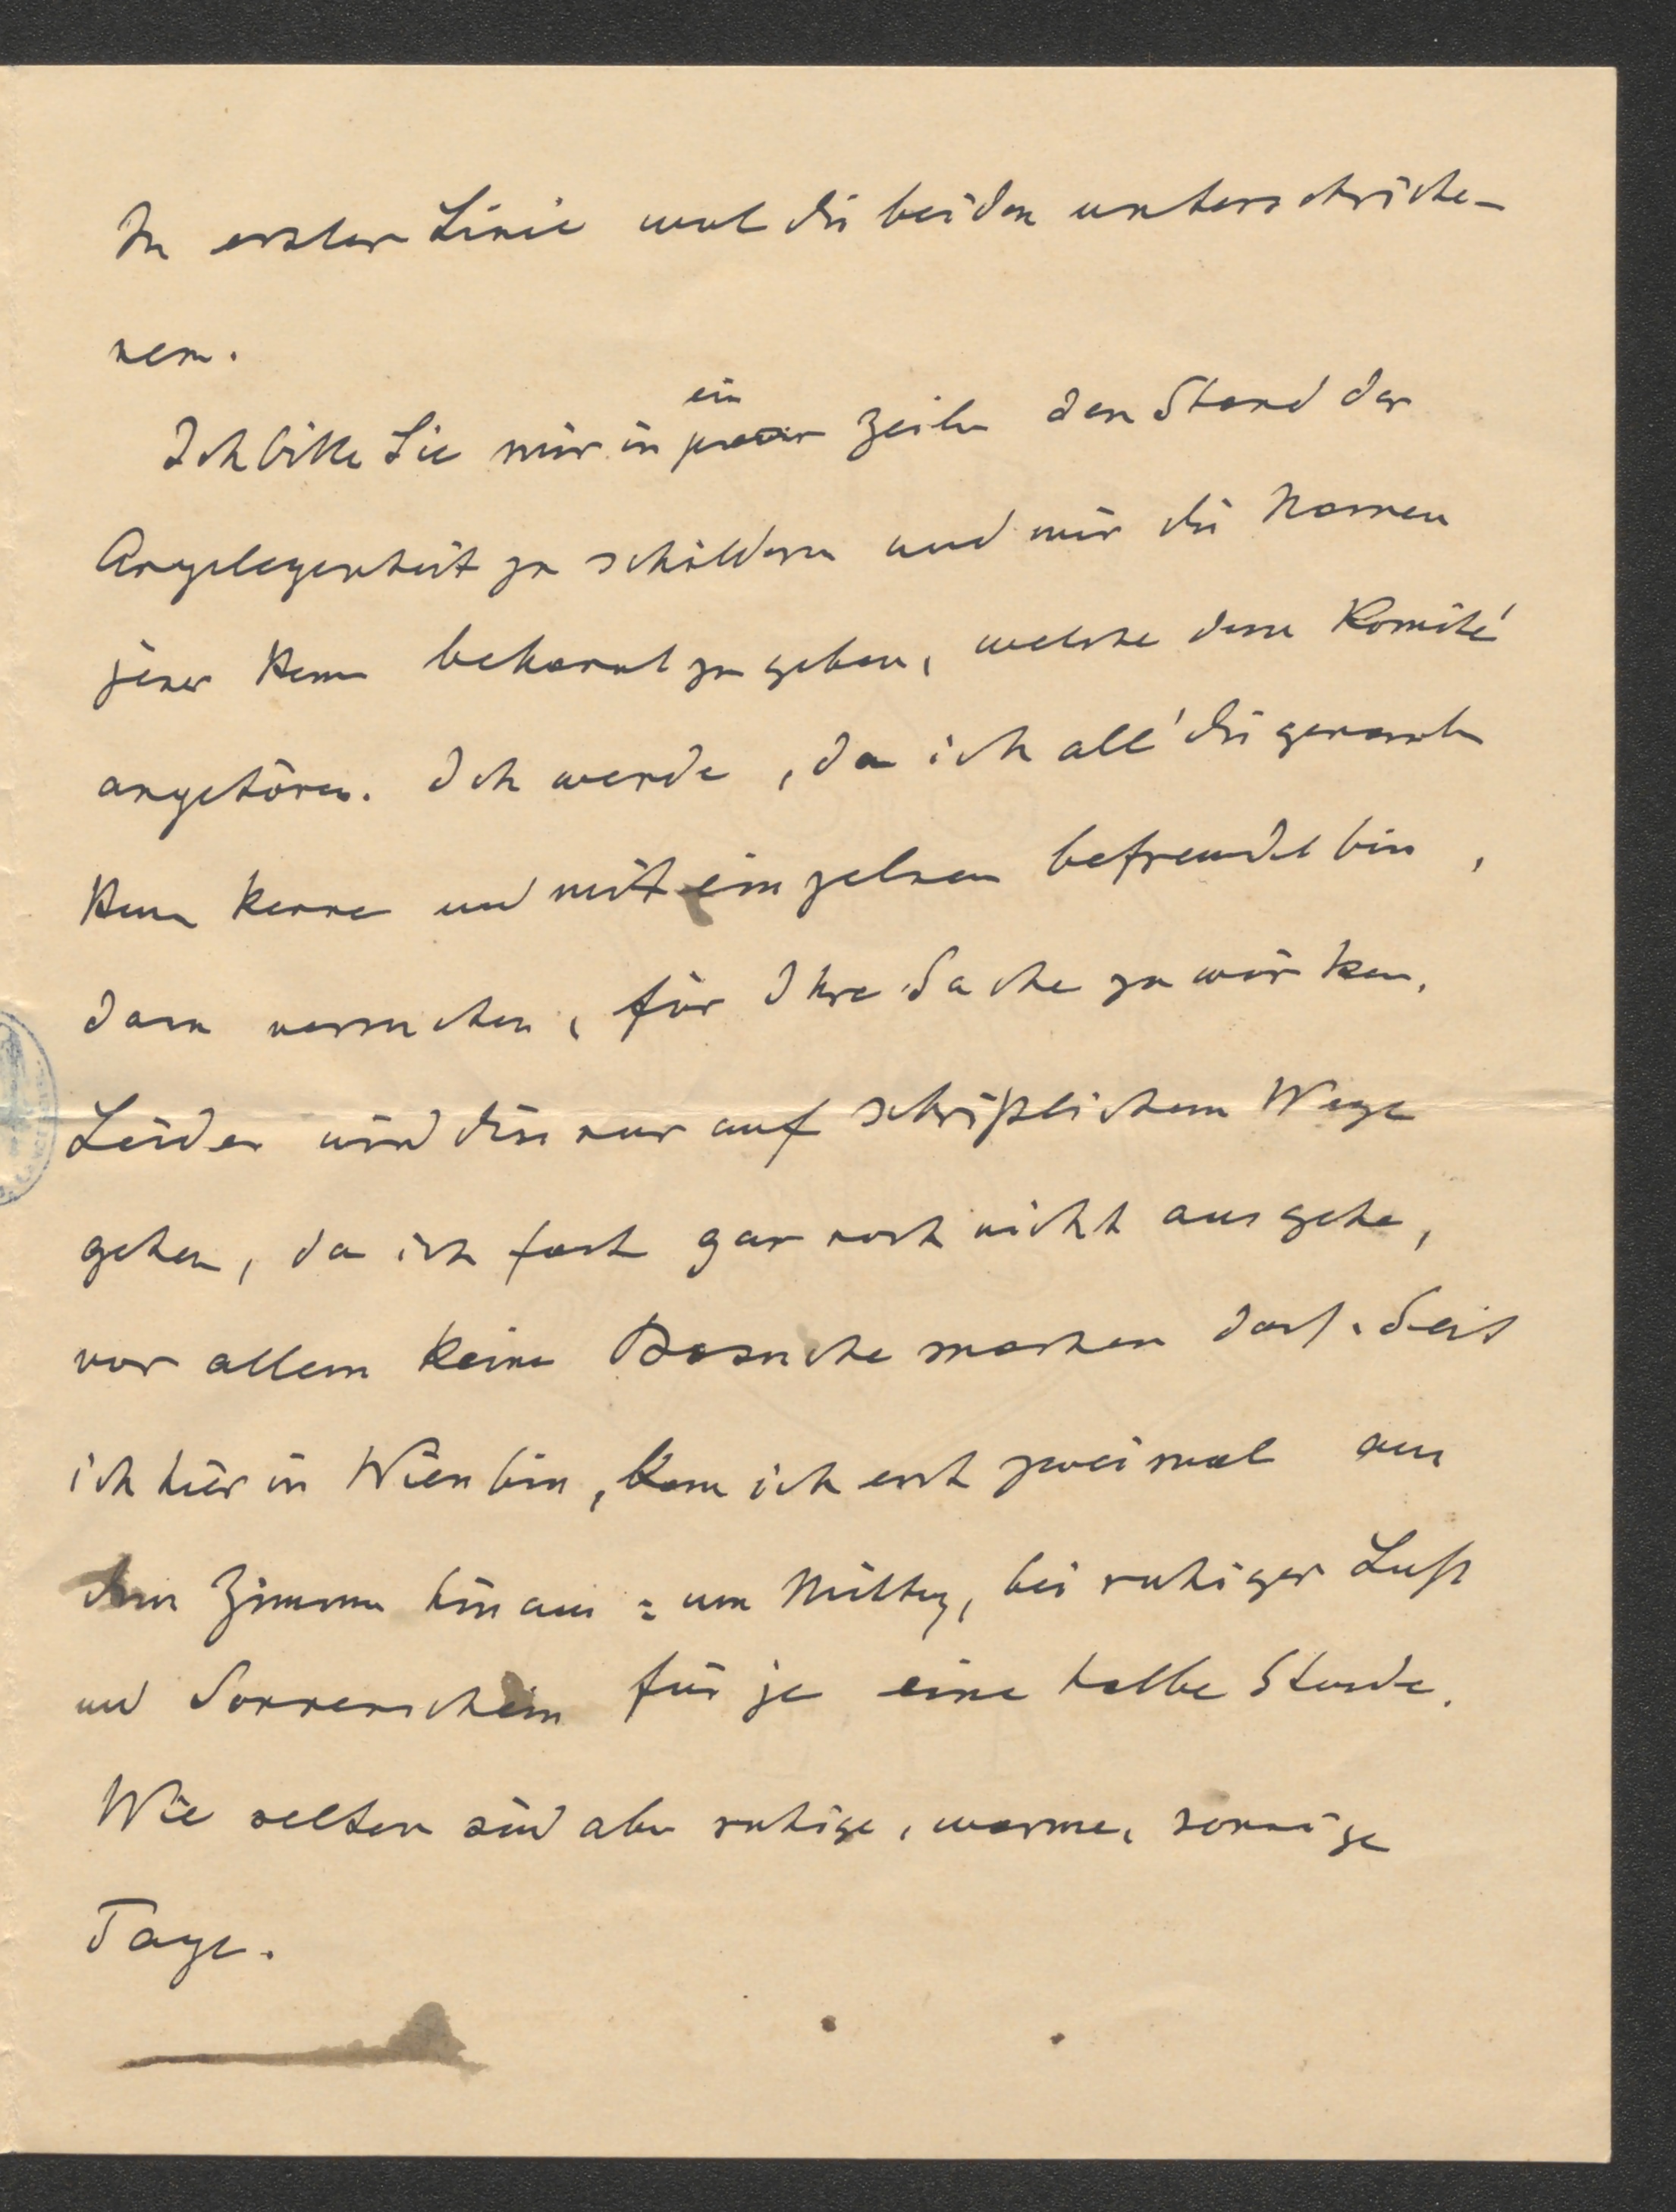 In erster Linie wol die beiden unterstriche-
nen.
Ich bitte Sie mir in ein paar Zeilen den Stand der
Angelegenheit zu schildern und mir die Namen
jener Herrn bekannt zu geben, welche dem Komité
angehören. Ich werde, da ich all' die genannten
Herrn kenne und mit einzelnen befreundet bin,
dann versuchen, für Ihre Sache zu wirken.
Leider wird dies nur auf schriftlichem Wege
gehen, da ich fast gar noch nicht ausgehe,
vor allem keine Besuche machen darf. Seit
ich hier in Wien bin, kam ich erst zweimal aus
dem Zimmer hinaus: um Mittag, bei ruhiger Luft
und Sonnenschein für je eine halbe Stunde.
Wie selten sind aber ruhige, warme, sonnige
Tage.